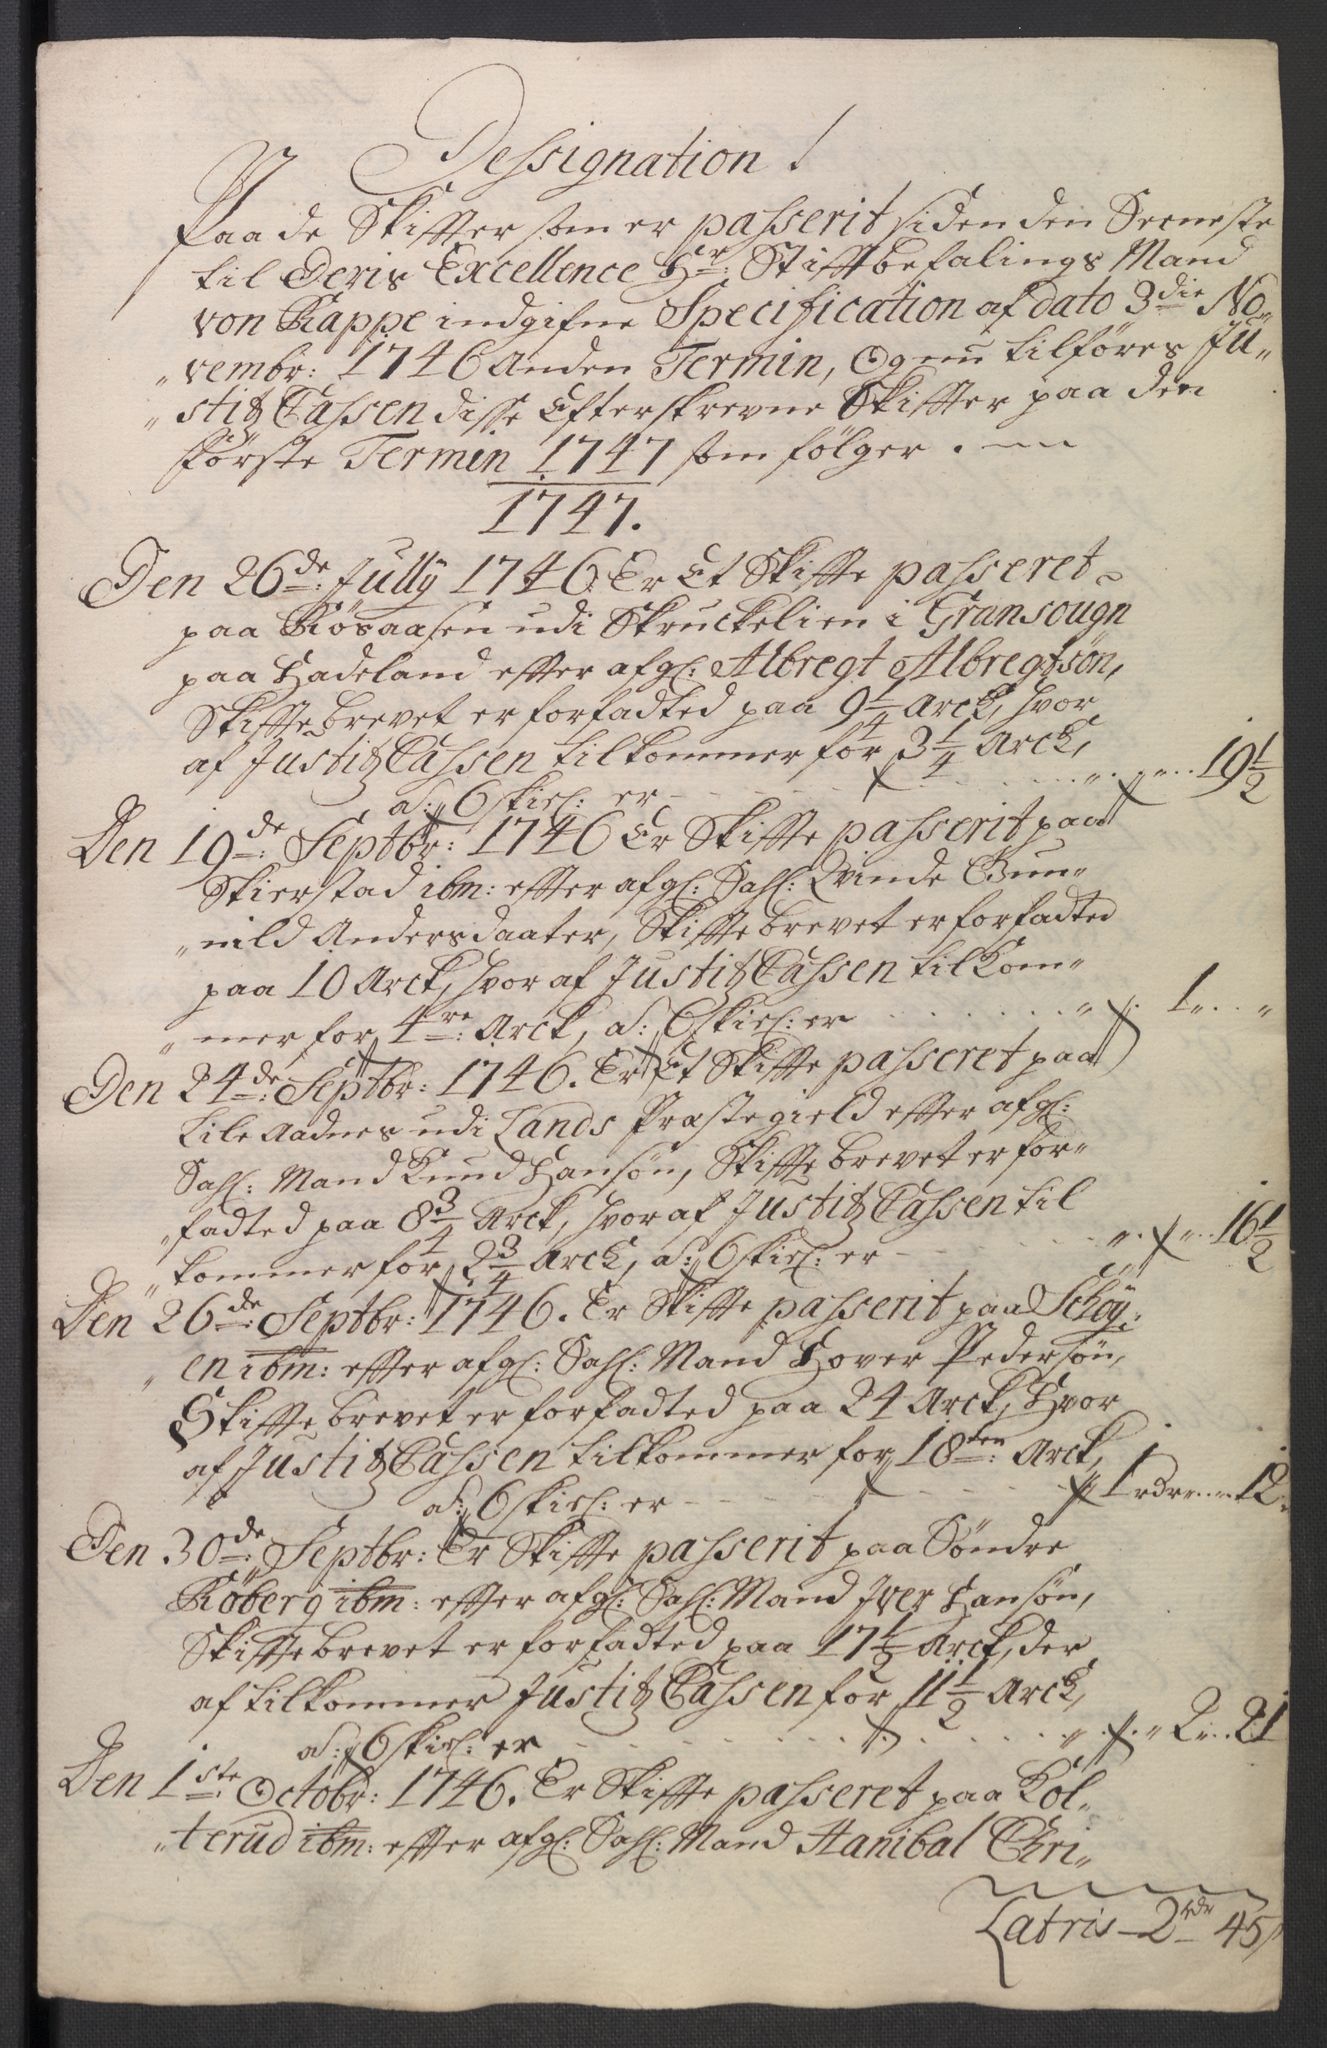 Dessignation
Paa de Skiffter som er passerit siden den Seeneste
til Deris Excellence Hr: Stiftbefalings Mand
von Rappe indgifne Specification af dato 3die No„
„vembr: 1746 Anden Termin, Og nu tilføres Ju„
„stitz Cassen disse Efterskrevne Skiffter paa den
første Termin 1747 som følger.
1747.
Den 26de: Jully 1746. Er Et Skiffte passeret
paa Røsaasen udi Skruckelien i Gransougn
paa Hadeland effter afgl: Albregt Albregtsøn,
Skifftebrevet er forfadted paa 9 1/4 Arck, hvor
af Justitz Cassen tilkommer for 3 1/4 Arck,
a: 6 skiel: er - - - 19 1/2
Den 19de: Septbr: 1746 Er Skiffte passerit paa
Skierstad ibm: effter afgl: Sahl: Qvinde Gun„
„nild Andersdaater, Skifftebrevet er forfadted
paa 10 Arck, hvor af Justitz Cassen tilkom„
„mer for 4re: Arck, a: 6 skiel: er . . . . 1 „ . . „
Den 24de: Septbr: 1746. Er Et Skiffte passeret paa
Lile Aadnes udi Lands Præstegield effter afgl:
Sahl: Mand Knud Hansøn, Skifftebrevet er for„
„fadted paa 8 3/4 Arck, hvor af Justitz Cassen til
„kommer for 2 3/4 Arck, a: 6 skiel: er - - - 16 1/2
Den 26de: Septbr: 1746. Er Skiffte passerit paa Schøy„
„en ibm: effter afgl: Sahl: Mand Hover Pedersøn,
Skifftebrevet er forfadted paa 24 Arck, Hvor
af Justitz Cassen tilkommer for 18ten: Arck,
a: 6 skiel: er - - - 1 rdr „ . . 12
Den 30de: Septbr: Er Skiffte passerit paa Søndre
Køberg ibm: effter afgl: Sahl: Mand Iver Hansøn,
Skifftebrevet er forfadted paa 17 1/2 Arck, der
af tilkommer Justitz Cassen for 11 1/2 Arck,
a: 6 skiel: er . . . . 2 . . 21
Den 1ste: Octobr: 1746. Er Skiffte passeret paa Kol„
„terud ibm: effter afgl: Sahl: Mand Hanibal Chri„
Latris - 2 rdr 45